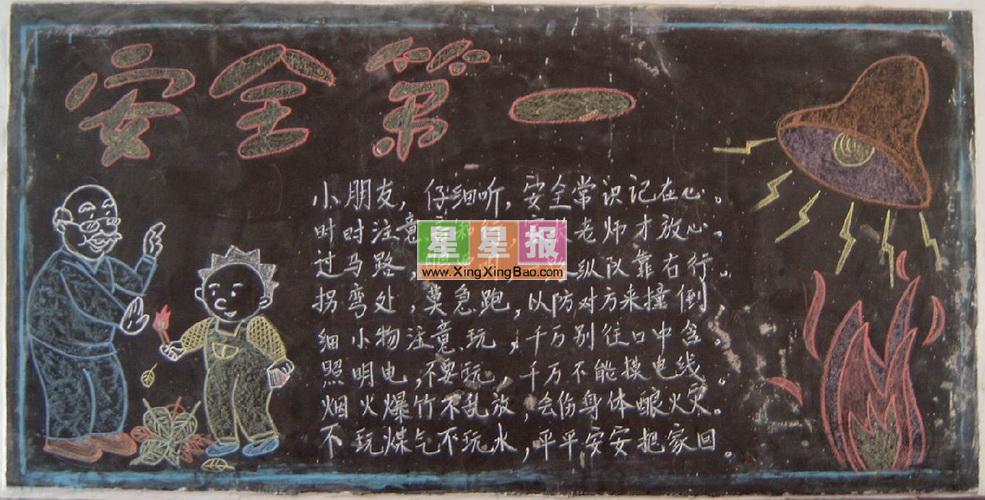 安全第一
小朋友，仔细听，安全常识记在心。
时时注意 老师才放心。
过马路 纵队靠右行。
拐弯处，莫急跑，以防对方来撞倒，
细小物注意玩，千万别往口中含。
照明电，不要玩，千万不能摸电线。
烟火爆竹不乱放，会伤身体酿火灾。
不玩煤气不玩水，平平安安把家回。
星星报
www.XingXingBao.com